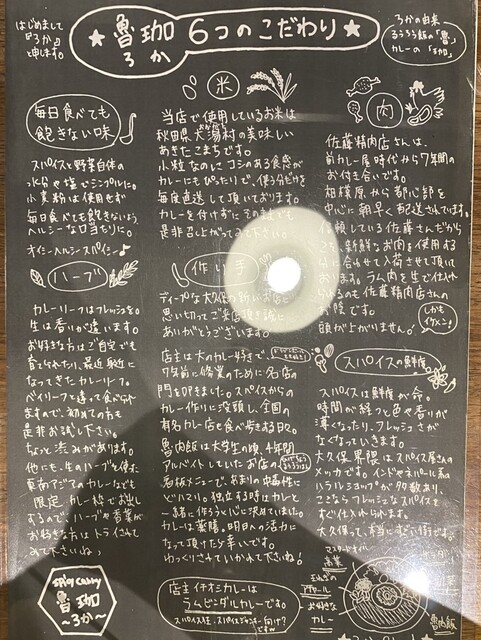 はじめまして
『ろか』と
申します。
★ 魯珈 6つのこだわり ★
ろか
ろかの由来
るうろう飯の「魯」
カレーの「珈」
毎日食べても
飽きない味
スパイスと野菜自体の
水分や塩でシンプルに。
小麦粉は使用せず
毎日食べても飽きないよう
ヘルシーな口当たりに。
オイシーヘルシースパイシー♪
ハーブ
カレーリーフはフレッシュを。
生は香りが違います。
お好きな方はご自宅でも
育てられたり、最近身近に
なってきたカレーリーフ。
ベイリーフと違って食べられ
ますので、初めての方も
是非お試し下さい。
ちょっと渋みがあります。
他にも、生のハーブを使った
東南アジアのカレーなども
限定カレー枠でお出し
するので、ハーブや香菜が
お好きな方はトライされて
みて下さいね♪
SPicy Curry
魯珈
～ろか～
米
当店で使用しているお米は
秋田県大潟村の美味しい
あきたこまちです。
小粒なのにコシのある食感が
カレーにもぴったりで、使う分だけを
毎度直送して頂いております。
カレーを付けずにそのままでも
是非召し上がってみて下さい。
作り手
ディープな大久保の新しいお店に
思い切ってご来店頂き誠に
ありがとうございます。
店主は大のカレー好きで、
7年前に修業のために名店の
門を叩きました。スパイスからの
カレー作りに没頭し、全国の
有名カレー店を食べ歩きる日々。
魯肉飯は大学生の頃、4年間
アルバイトしていたお店の
看板メニューで、あまりの中毒性に
ドハマり。独立する時はカレーと
一緒に作ろうと心に決めていました。
カレーは薬膳。明日への活力に
なって頂けたら幸いです。
ゆっくりされていかれて下さいね!
店主イチオシカレーは
ラムビンダルカレーです。
肉
佐藤精肉店さんは、
前カレー屋時代から7年間の
お付き合いです。
相模原から都心部を
中心に朝早く配送されています。
信頼している佐藤さんだから
こそ、新鮮なお肉を使用する
分に合わせて入荷させて頂いて
おります。ラム肉を生で仕入れ
られるのも佐藤精肉店さんの
お陰です。
頭が上がりません。
しかも
イケメン!
スパイスの鮮度
スパイスは鮮度が命。
時間が経つと色や香りが
薄くなったり、フレッシュさが
なくなっていきます。
大久保界隈はスパイス屋さんの
メッカです。インドやネパール系の
ハラルショップが多数あり、
ここならフレッシュなスパイスを
すぐ仕入れられます。
大久保って、本当にすごい街です。
高菜
お好きな
カレー
魯肉飯